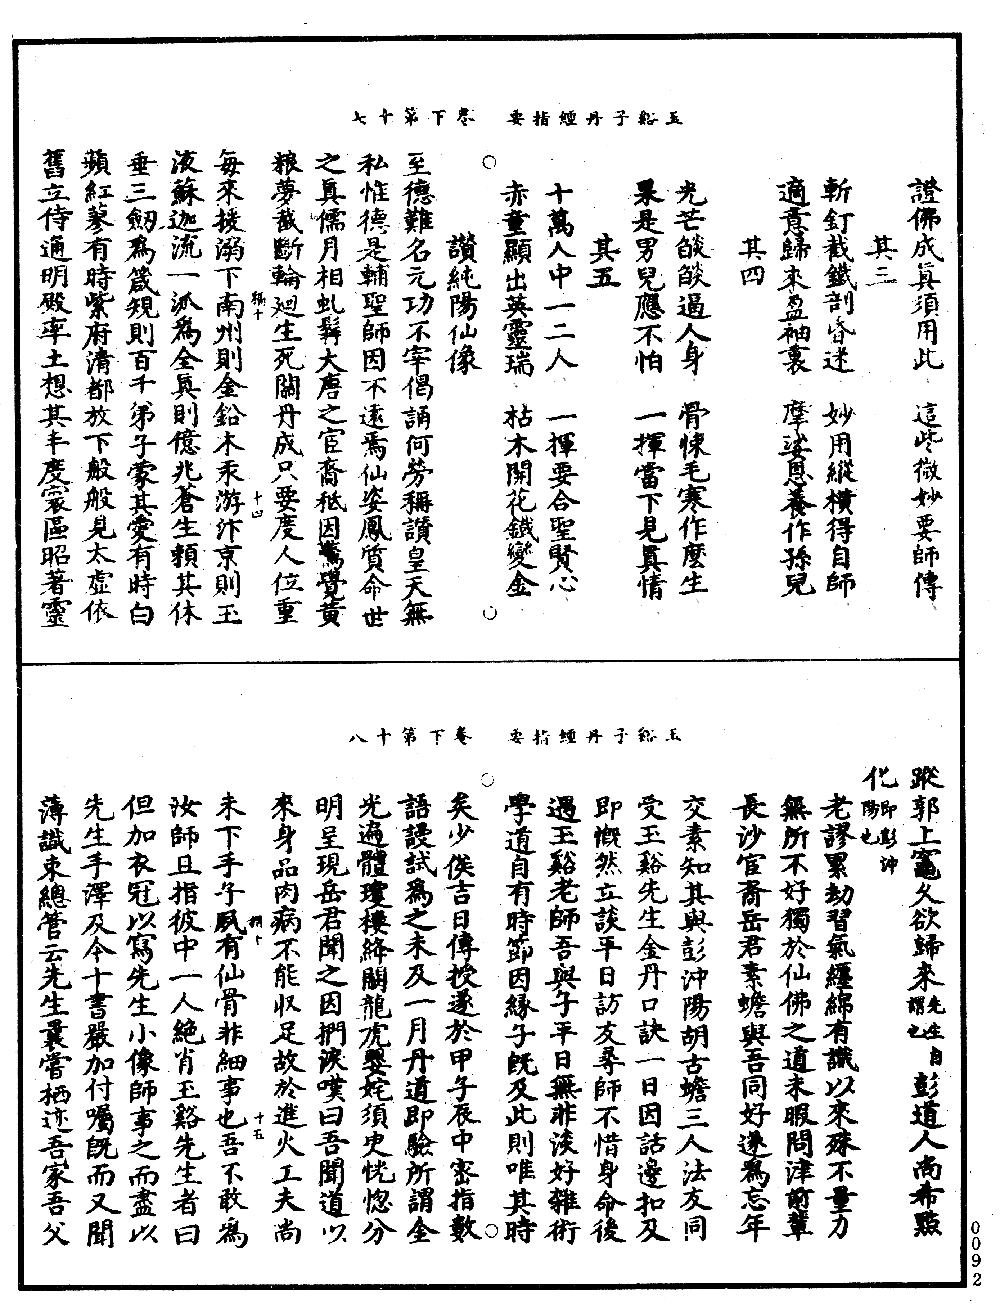 玉谿子丹經指要　卷下第十七
證佛成眞須用此　這些微妙要師傳
其三
斬釘截鐵剖昏迷　妙用縱橫得自師
適意歸來盈袖裏　摩挲恩養作孫兒
其四
光芒餤餤逼人身　骨悚毛寒作麽生
果是男兒應不怕　一揮當下見眞情
其五
十萬人中一二人　一揮要合聖賢心
赤童顯出英靈瑞　枯木開花鐵變金
讚純陽仙像
至德難名元功不宰偈誦何勞稱讚皇天無
私惟德是輔聖師因不遠焉仙姿鳳質命世
之眞儒月相虬髯大唐之宦裔秖因驚覺黄
粮夢截斷輪廻生死關丹成只要度人位重
稱十
十四
每來援溺下南州則金鉛木汞游汴京則玉
液蘇迦流一派爲全眞則億兆蒼生賴其休
垂三劒爲箴規則百千弟子蒙其愛有時白
蘋紅蓼有時紫府清都放下般般見太虛依
舊立侍通明殿率土想其丰度寰區昭著靈
玉谿子丹經指要　卷下第十八
蹤郭上竈久欲歸來先生自謂也彭道人尚希點
化即彭沖陽也
老謬累劫習氣纏綿有識以來殊不量力
無所不好獨於仙佛之道未暇問津前輩
長沙宦裔岳君素蟾與吾同好遂爲忘年
交素知其與彭沖陽胡古蟾三人法友同
受玉谿先生金丹口訣一日因話邊扣及
即慨然立談平日訪友尋師不惜身命後
遇玉谿老師吾與子平日無非淡好雜術
學道自有時節因緣子旣及此則唯其時
矣少俟吉日傳授遂於甲午辰中密指數
語謾試爲之未及一月丹道即驗所謂金
光遍體瓊樓絳闕龍虎嬰姹須臾恍惚分
明呈現岳君聞之因捫淚嘆曰吾聞道以
來身品肉病不能収足故於進火工夫尚
稱十
十五
未下手子夙有仙骨非細事也吾不敢爲
汝師且指彼中一人絶肖玉谿先生者曰
但加衣冠以寫先生小像師事之而盡以
先生手澤及今十書嚴加付囑旣而又聞
薄識束總管云先生曩嘗栖迹吾家吾父
0092